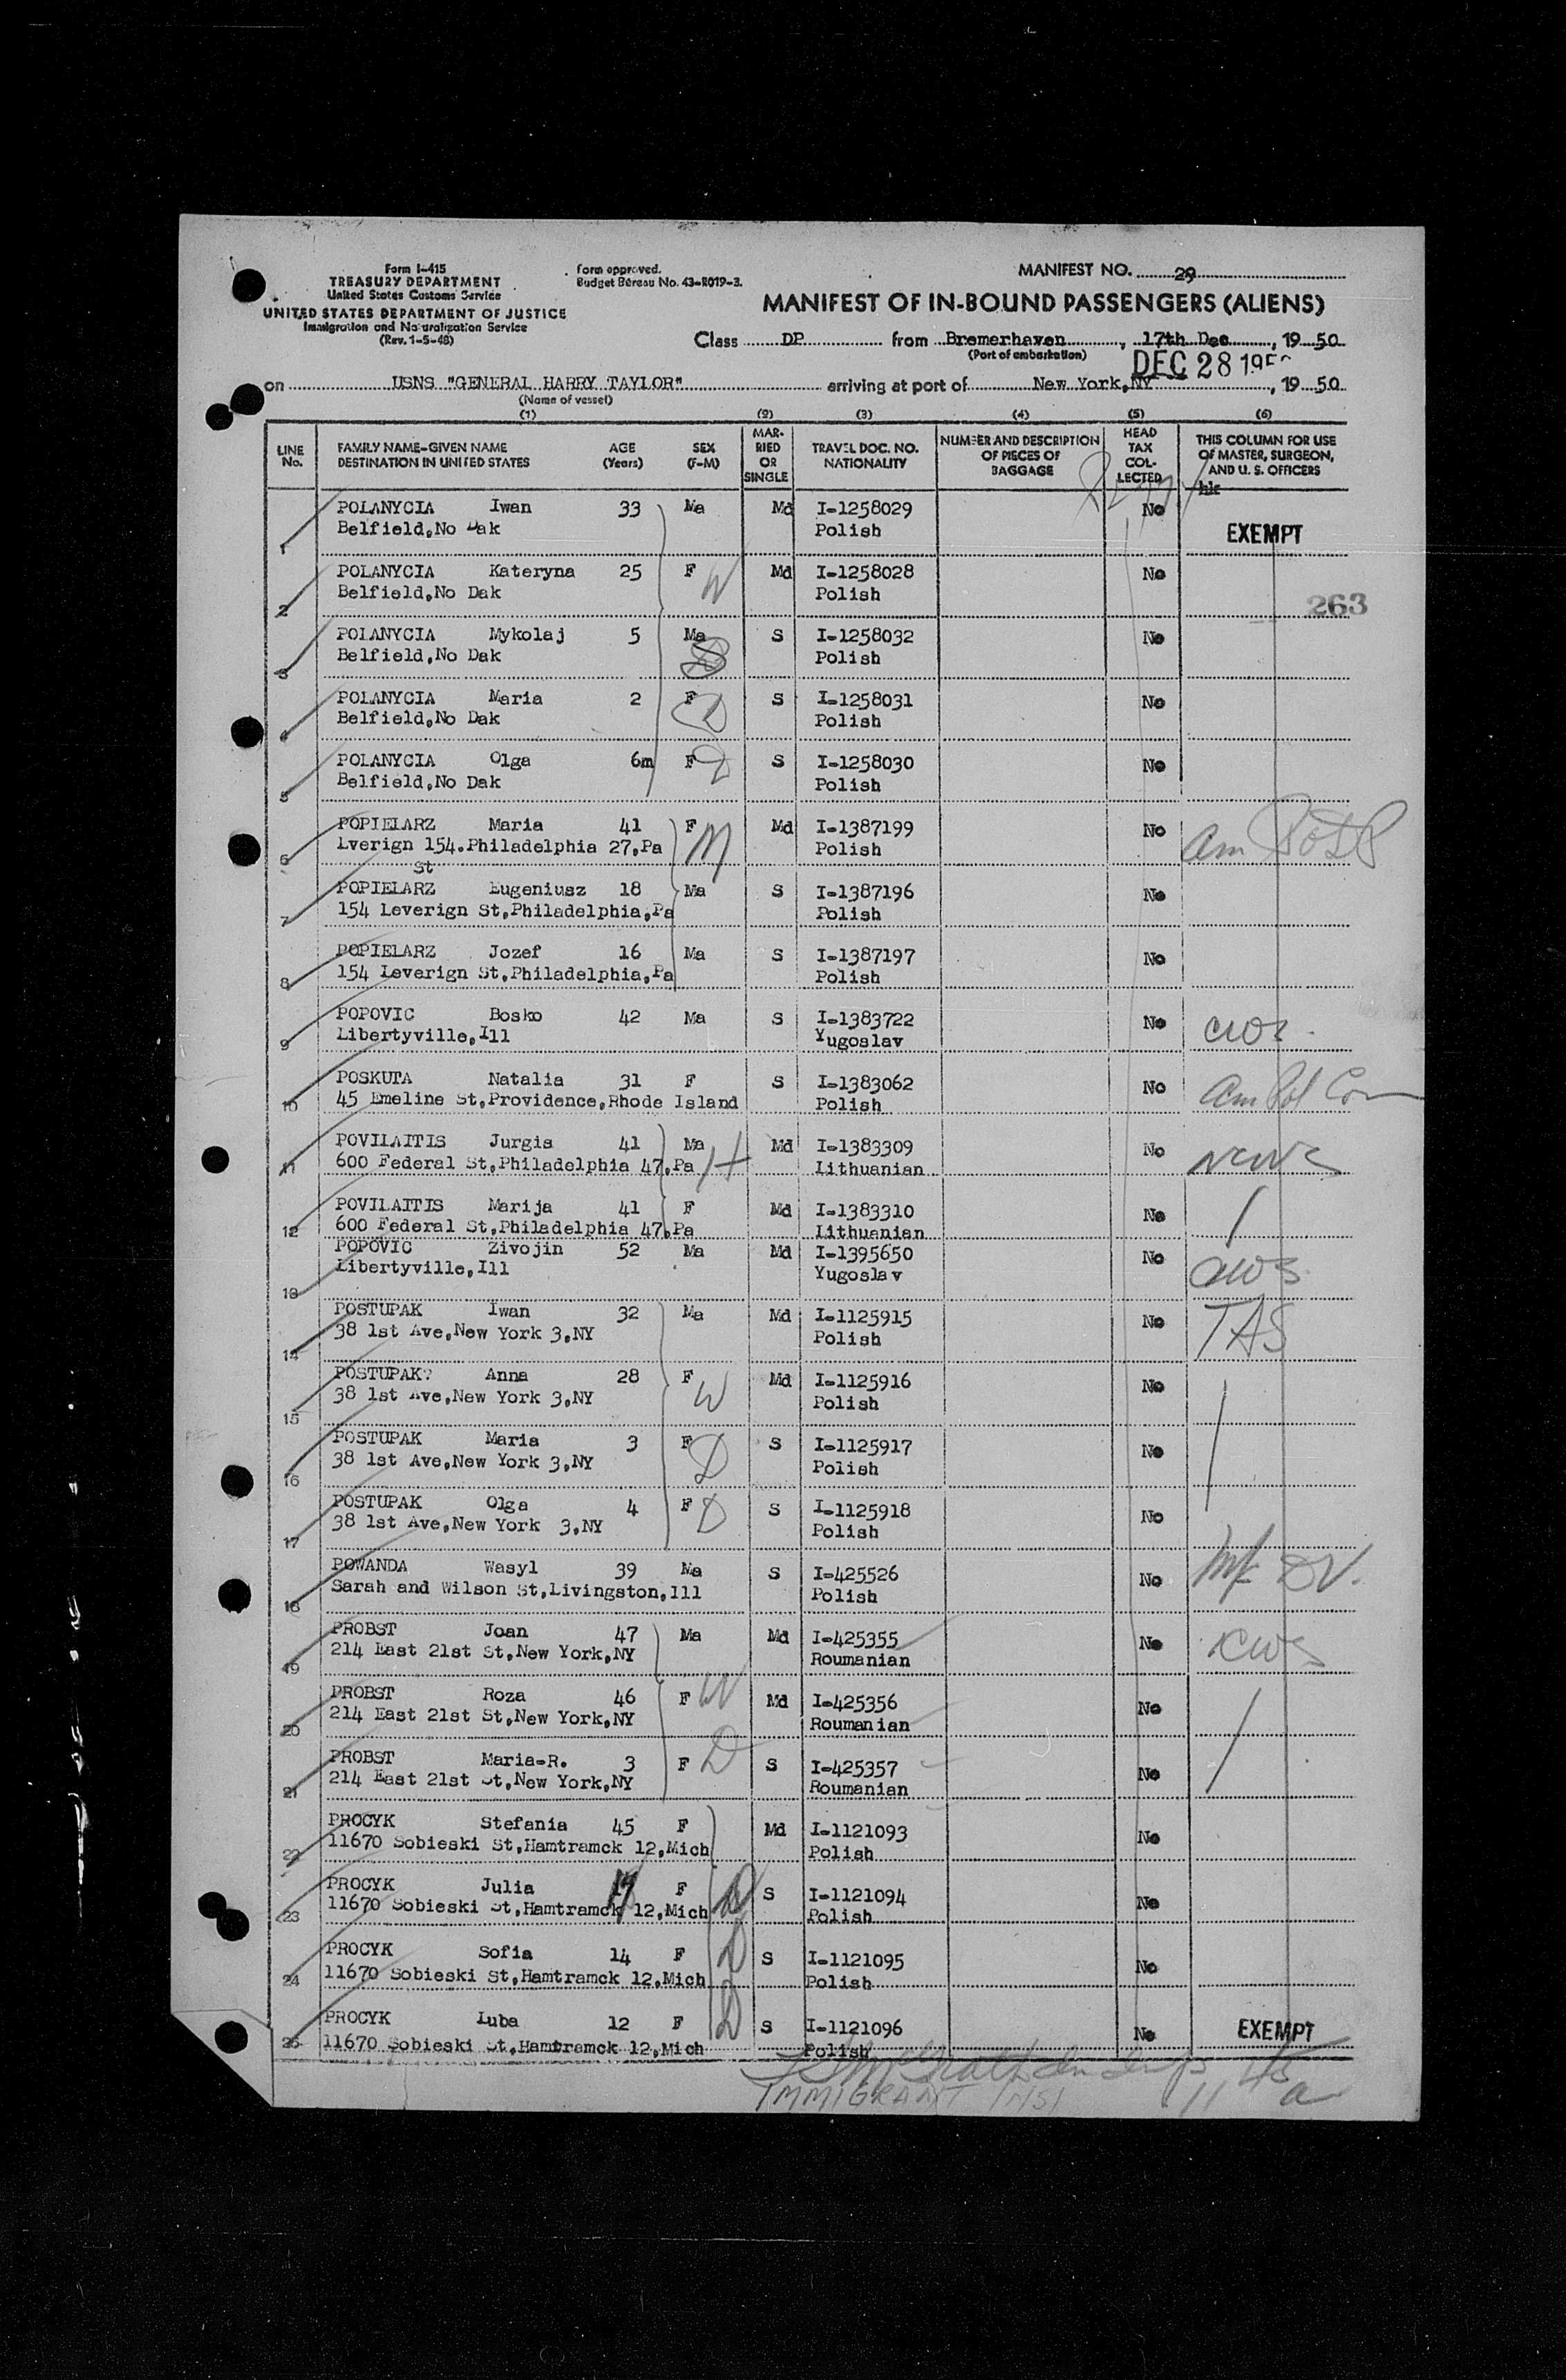 Form I-415
TREASURY DEPARTMENT
United States Customs Service
UNITED STATES DEPARTMENT OF JUSTICE
Immigration and Naturalization Service
(Rev. 1-5-48)
Form approved.
Budget Bureau No. 43-R019-3.
MANIFEST NO. 29
MANIFEST OF IN-BOUND PASSENGERS (ALIENS)
Class DP from Bremerhaven, 17th Dec, 1950
(Port of embarkation)
DEC 28 195
on USNS "GENERAL HARRY TAYLOR" arriving at port of New York,NY, 1950
(Name of vessel)
(1) (2) (3) (4) (5) (6)
LINE No. FAMILY NAME-GIVEN NAME DESTINATION IN UNITED STATES AGE (Years) SEX (F-M) MARRIED OR SINGLE TRAVEL DOC. NO. NATIONALITY NUMBER AND DESCRIPTION OF PIECES OF BAGGAGE HEAD TAX COLLECTED THIS COLUMN FOR USE OF MASTER, SURGEON, AND U. S. OFFICERS
1 POLANYCIA Iwan 33 Ma Md I-1258029 No
Belfield,No Dak Polish EXEMPT
2 POLANYCIA Kateryna 25 F W Md I-1258028 No
Belfield,No Dak Polish
263
3 POLANYCIA Mykolaj 5 Ma S I-1258032 No
Belfield,No Dak Polish
4 POLANYCIA Maria 2 F D S I-1258031 No
Belfield,No Dak Polish
5 POLANYCIA Olga 6m F D S I-1258030 No
Belfield,No Dak Polish
6 POPIELARZ Maria 41 F M Md I-1387199 No
Lverign 154.Philadelphia 27,Pa Polish Am
St
7 POPIELARZ Eugeniusz 18 Ma S I-1387196 No
154 Leverign St,Philadelphia,Pa Polish
8 POPIELARZ Jozef 16 Ma S I-1387197 No
154 Leverign St,Philadelphia,Pa Polish
9 POPOVIC Bosko 42 Ma S I-1383722 No
Libertyville,Ill Yugoslav CWS
10 POSKUTA Natalia 31 F S I-1383062 No
45 Emeline St,Providence,Rhode Island Polish Am Pol Com
11 POVILAITIS Jurgis 41 Ma H Md I-1383309 No
600 Federal St,Philadelphia 47,Pa Lithuanian NCWC
12 POVILAITIS Marija 41 F Md I-1383310 No
600 Federal St,Philadelphia 47,Pa Lithuanian
13 POPOVIC Zivojin 52 Ma Md I-1395650 No
Libertyville,Ill Yugoslav CWS
14 POSTUPAK Iwan 32 Ma Md I-1125915 No TAS
38 1st Ave,New York 3,NY Polish
15 POSTUPAK? Anna 28 F W Md I-1125916 No
38 1st Ave,New York 3,NY Polish
16 POSTUPAK Maria 3 F D S I-1125917 No
38 1st Ave,New York 3,NY Polish
17 POSTUPAK Olga 4 F D S I-1125918 No
38 1st Ave,New York 3,NY Polish
18 POWANDA Wasyl 39 Ma S I-425526 No
Sarah and Wilson St,Livingston,Ill Polish
19 PROBST Joan 47 Ma Md I-425355 No
214 East 21st St,New York,NY Roumanian
20 PROBST Roza 46 F W Md I-425356 No
214 East 21st St,New York,NY Roumanian
21 PROBST Maria-R. 3 F D S I-425357 No
214 East 21st St,New York,NY Roumanian
22 PROCYK Stefania 45 F Md I-1121093 No
11670 Sobieski St,Hamtramck 12,Mich Polish
23 PROCYK Julia F D S I-1121094 No
11670 Sobieski St,Hamtramck 12,Mich Polish
24 PROCYK Sofia 14 F D S I-1121095 No
11670 Sobieski St,Hamtramck 12,Mich Polish
25 PROCYK Luba 12 F D S I-1121096 No EXEMPT
11670 Sobieski St,Hamtramck 12,Mich Polish
IMMIGRANT INSP